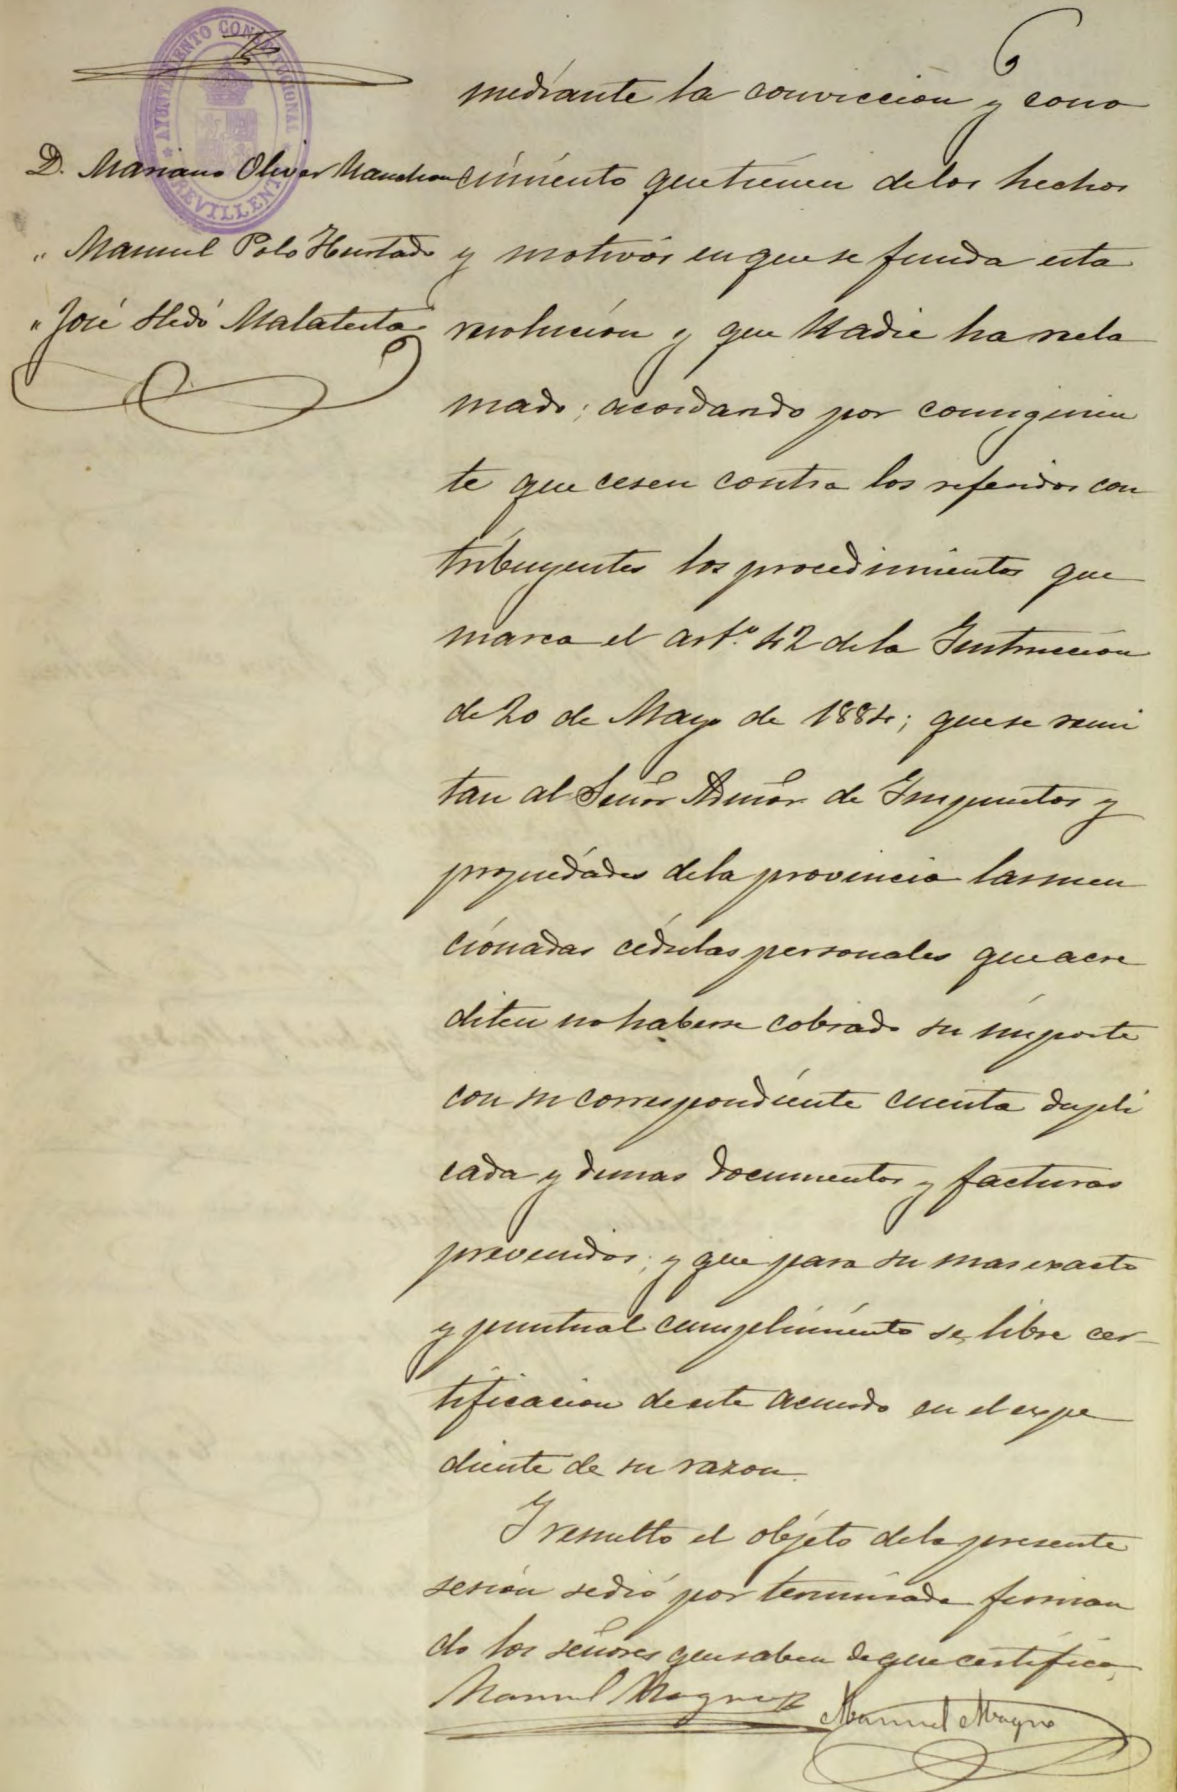 6
AYUNTAMIENTO CONSTITUCIONAL
CREVILLENTE
D. Mariano Oliver Manchon
" Manuel Polo Hurtado
" José Sledó Malatesta
mediante la conviccion y cono
cimiento que tienen de los hechos
y motivos en que se funda esta
resolucion y que Nadie ha recla
mado; acordando por consiguien
te que cesen contra los referidos con
tribuyentes los procedimientos que
marca el art.º 42 de la Instruccion
de 20 de Mayo de 1884; que se remi
tan al Señor Admor de Impuestos y
propiedades de la provincia las men
cionadas cédulas personales que acre
diten no haberse cobrado su importe
con su correspondiente cuenta dupli
cada y demas documentos y facturas
prevenidos; y que para su mas exacto
y puntual cumplimiento se libre cer-
tificacion de este acuerdo en el expe
diente de su razon.
Y resuelto el objeto de la presente
sesion se dió por terminada firman
do los señores que saben de que certifico,
Manuel Magro
Manuel Magro